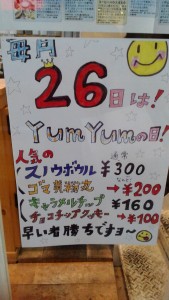 毎月
26
日は!
YumYumの日!
人気の 通常
スノウボウル ¥300
→¥200
キャラメルチップ ¥160
チョコチップクッキー →¥100
早い者勝ちですョ〜